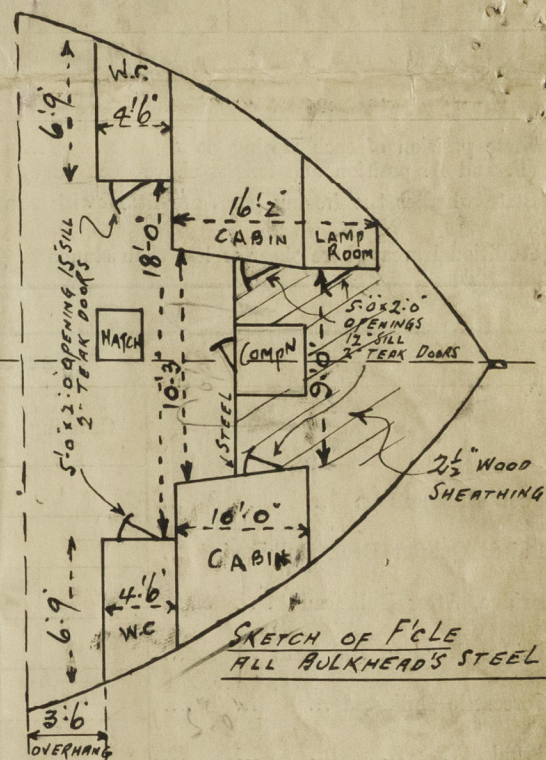 W.C.
4'6"
6'9"
16'2"
CABIN
LAMP
ROOM
18'-0"
5'0"x2'0" OPENING 15" SILL
2" TEAK DOORS
5'0"x2'0"
OPENINGS
12" SILL
2" TEAK DOORS
HATCH
COMPN
10'-3"
9'-0"
STEEL
2½" WOOD
SHEATHING
10'-0"
CABIN
4'-6"
W.C
6'9"
SKETCH OF F'CLE
ALL BULKHEAD'S STEEL
3'6"
OVERHANG